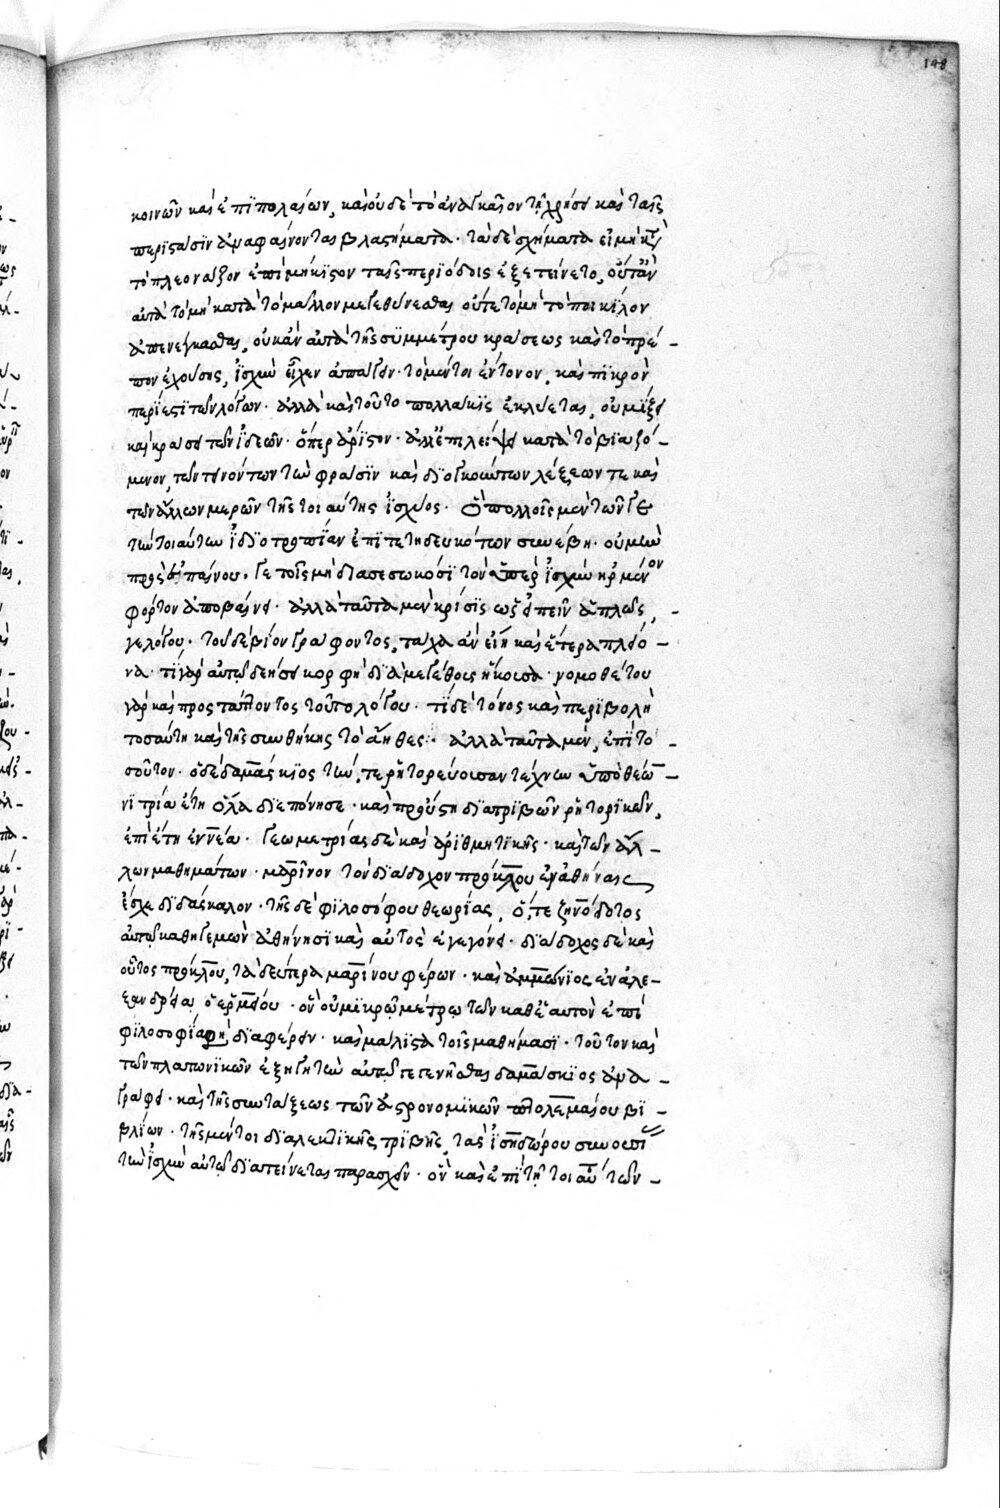 148
κοινῶν καὶ ἐπιπολαίων, καὶ οὐδὲ τὸ ἀναγκαῖον τῇ χρήσει καὶ ταῖς
περιστάσιν ἀναφαίνονται βλαστήματα. τὰ δὲ σχήματα εἰ μὴ καὶ
τὸ πλεονάζον ἐπὶ μήκιστον ταῖς περιόδοις ἐξετείνετο, οὔτ' ἂν
αὐτὰ τὸ μὴ κατὰ τὸ μᾶλλον μεγεθύνεσθαι οὔτε τὸ μὴ τὸ ποικίλον
ἀπενέγκασθαι, οὐκ ἂν αὐτὰ τῆς συμμέτρου κράσεως καὶ τὸ πρέ-
πον ἐχούσης, ἰσχὺν εἶχεν ἀπάγειν. τὸ μέντοι ἔντονον, καὶ πικρὸν
περίεστι τῶν λόγων. ἀλλὰ καὶ τοῦτο πολλάκις ἐκλύεται, οὐ μίξει
καὶ κράσει τῶν ἰδεῶν. ὅπερ ἄριστον. ἀλλ' ἐπιλείψει κατὰ τὸ βιαζό-
μενον, τῶν τονούντων τὴν φράσιν καὶ διογκούντων λέξεών τε καὶ
τῶν ἄλλων μερῶν τῆς τοιαύτης ἰσχύος. ὃ πολλοῖς μὲν τῶν γε
τὴν τοιαύτην ἰδιοτροπίαν ἐπιτετηδευκότων συνέβη. οὐ μὴν
πρὸς ἐπαίνου γε τοῖς μὴ διασεσωκόσι τὸν ὑπὲρ ἰσχὺν ἠρμένον
φόρτον ἀποβαίνει. ἀλλὰ ταῦτα μὲν κρίσις ὡς εἰπεῖν ἁπλῶς,
γελοίου. τοῦ δὲ βίον γράφοντος, τάχα ἂν εἴη καὶ ἕτερα πλείο-
να. τί γὰρ αὐτῷ δεήσει κορφὴ διὰ μεγέθους ἥκουσα. νομοθέτου
γὰρ καὶ προστάττοντος τοῦ πολόγου. τί δὲ τόνος καὶ περιβολὴ
τοσαύτη καὶ τῆς συνθήκης τὸ ἄηθες. ἀλλὰ ταῦτα μὲν, ἐπὶ το-
σοῦτον. ὁ δὲ δαμάσκιος τήν, τε ῥητορεύουσαν τέχνην ὑπὸ θέω-
νι τρία ἔτη ὅλα διεπόνησε. καὶ προὔστη διατριβῶν ῥητορικῶν,
ἐπὶ ἔτη ἐννέα. γεωμετρίας δὲ καὶ ἀριθμητικῆς. καὶ τῶν ἄλ-
λων μαθημάτων. μαρῖνον τὸν διάδοχον πρόκλου ἐν ἀθήναις
ἔσχε διδάσκαλον. τῆς δὲ φιλοσόφου θεωρίας, ὅ, τε ζηνόδοτος
αὐτῷ καθηγεμὼν ἀθήνησι καὶ αὐτὸς ἐγεγόνει. διάδοχος δὲ καὶ
οὗτος πρόκλου, τὰ δεύτερα μαρίνου φέρων. καὶ ἀμμώνιος ἐν ἀλε-
ξανδρείᾳ ὁ ἑρμείου. ὃν οὐ μικρῷ μέτρῳ τῶν καθ' ἑαυτὸν ἐπὶ
φιλοσοφίᾳ φη διαφέρειν. καὶ μάλιστα τοῖς μαθήμασι. τοῦτον καὶ
τῶν πλατωνικῶν ἐξηγητὴν αὐτῷ γεγενῆσθαι δαμάσκιος ἀνα-
γράφει. καὶ τῆς συντάξεως τῶν ἀστρονομικῶν πτολεμαίου βι-
βλίων. τῆς μέντοι διαλεκτικῆς τριβῆς, τὰς ἰσιδώρου συνουσί
τὴν ἰσχὺν αὐτῷ διατείνεται παρασχεῖν. ὃν καὶ ἐπὶ τῇ τοιαύτων-